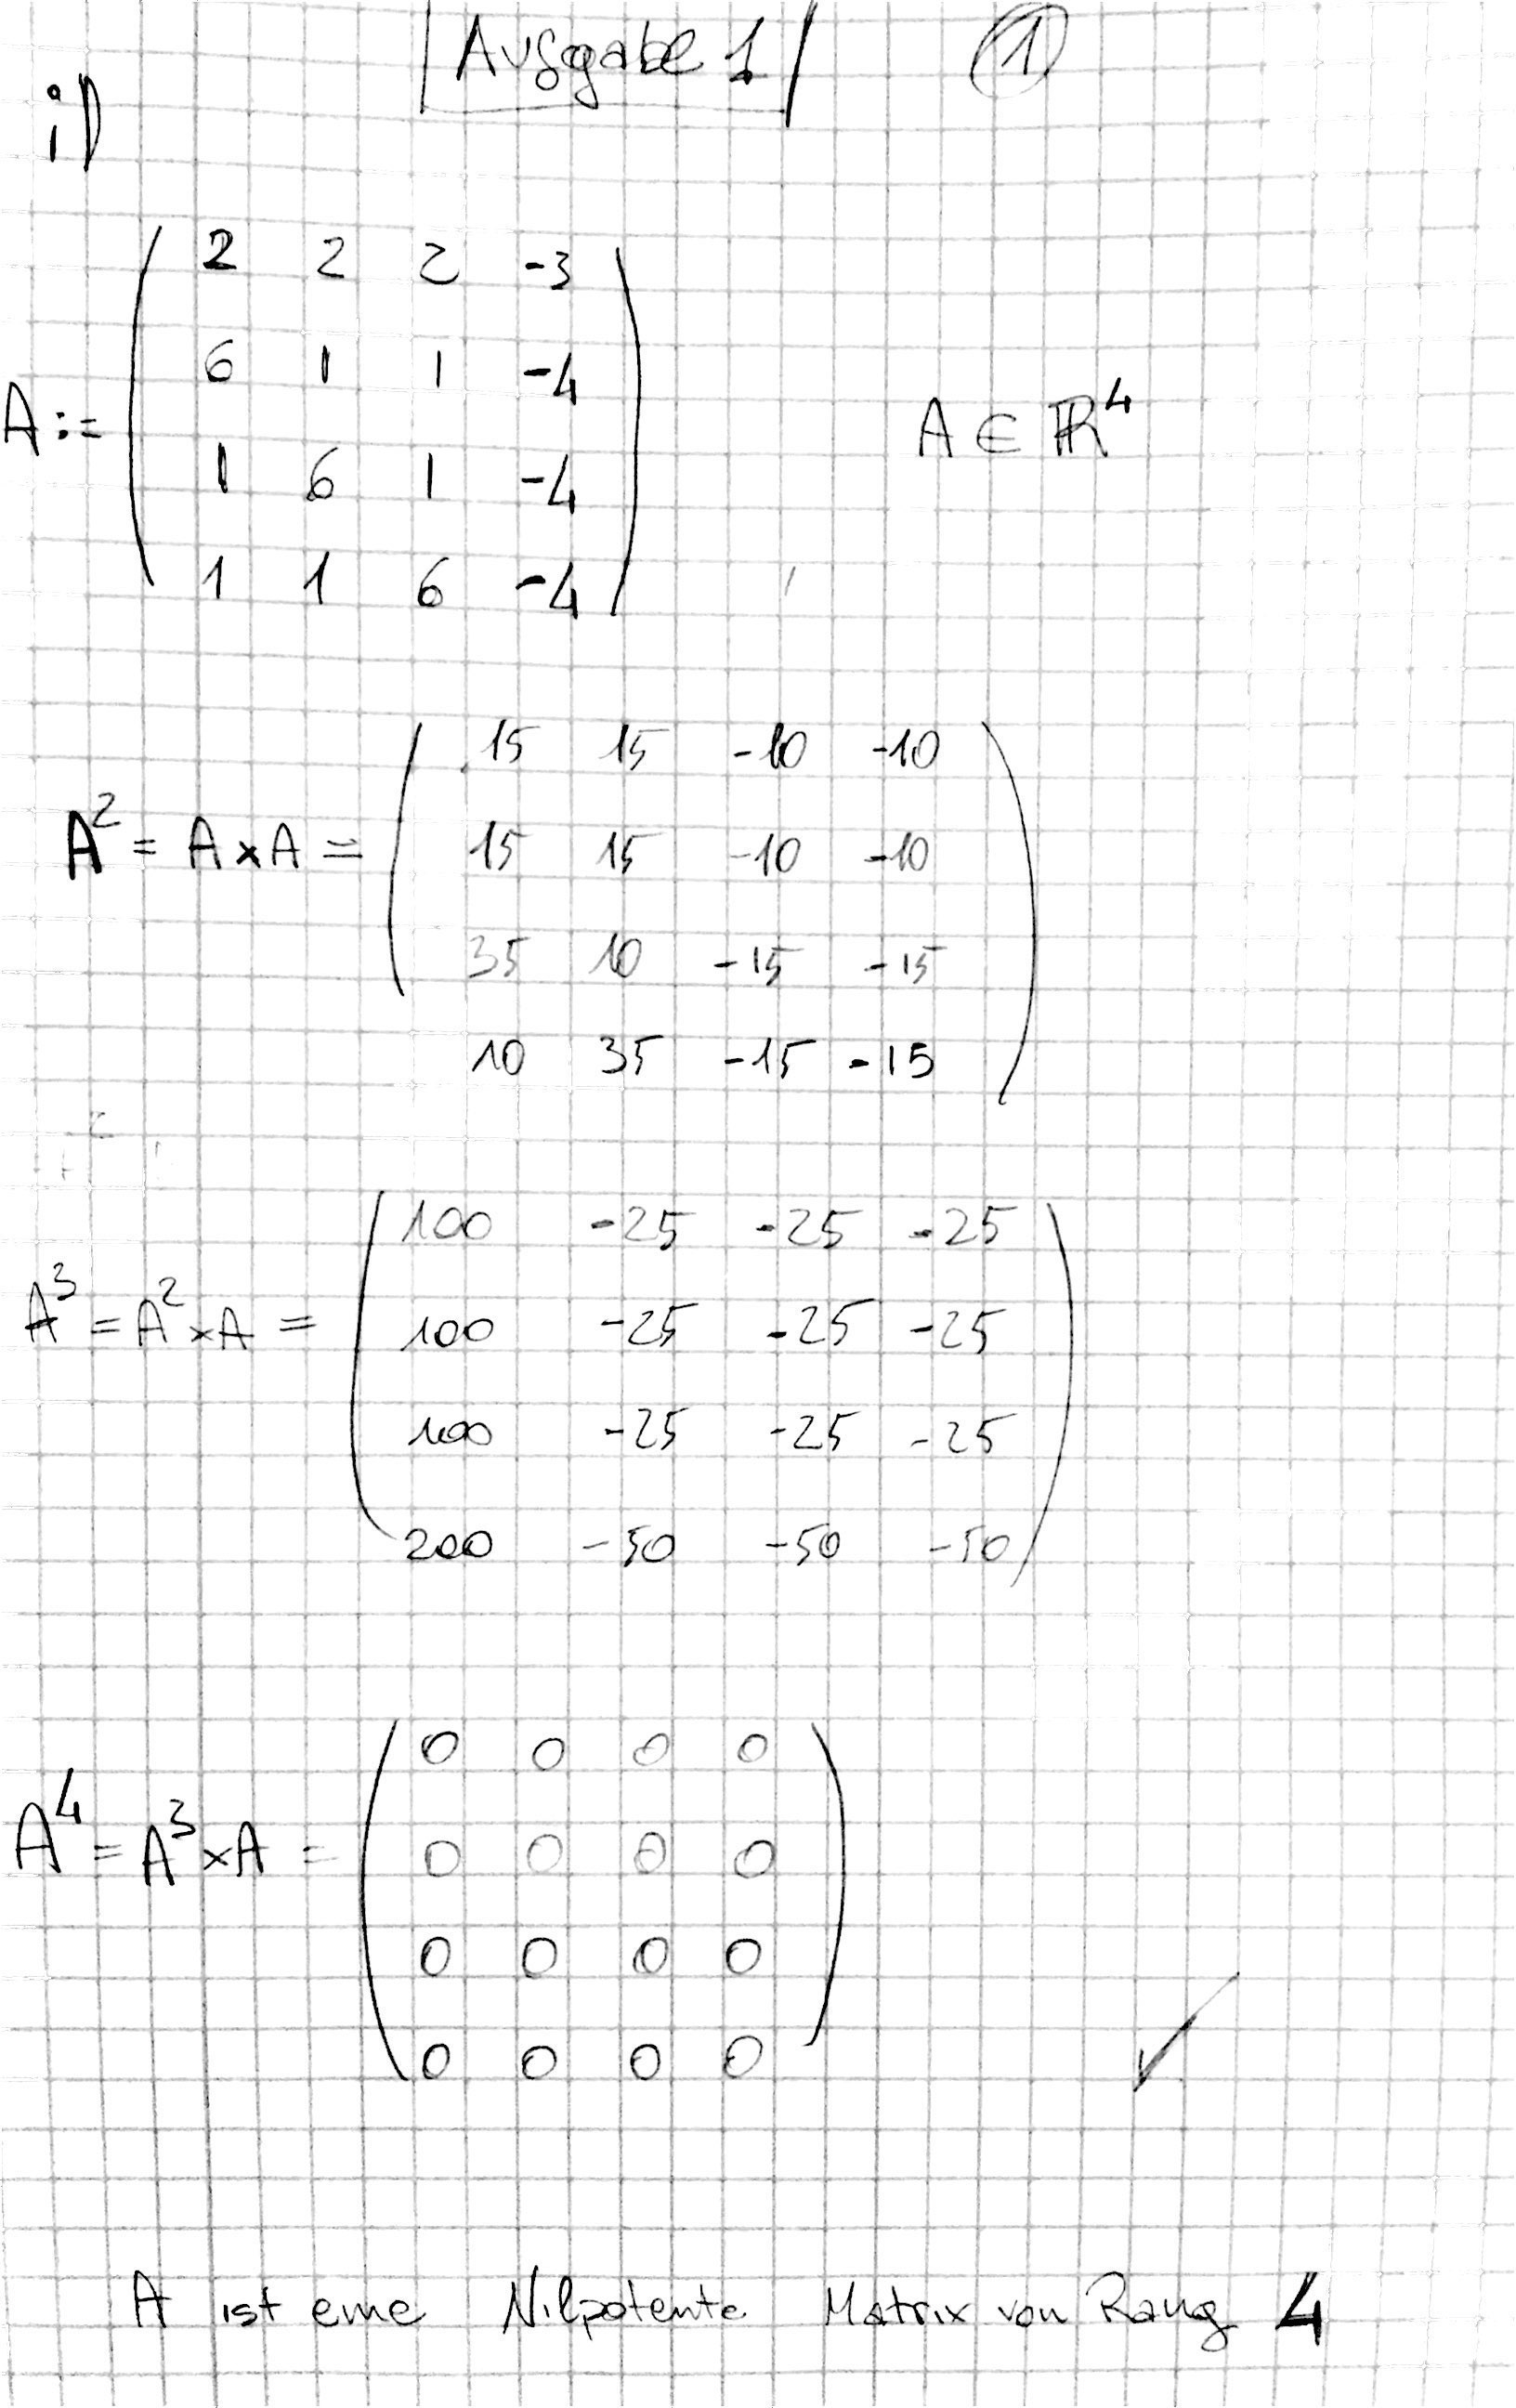 Aufgabe 1 ①
i)
A := ( 2 2 2 -3
6 1 1 -4
1 6 1 -4
1 1 6 -4 ) A ∈ ℝ⁴
A² = A × A = ( 15 15 -10 -10
15 15 -10 -10
35 10 -15 -15
10 35 -15 -15 )
A³ = A² × A = ( 100 -25 -25 -25
100 -25 -25 -25
100 -25 -25 -25
200 -50 -50 -50 )
A⁴ = A³ × A = ( 0 0 0 0
0 0 0 0
0 0 0 0
0 0 0 0 ) ✓
A ist eine Nilpotente Matrix von Rang 4